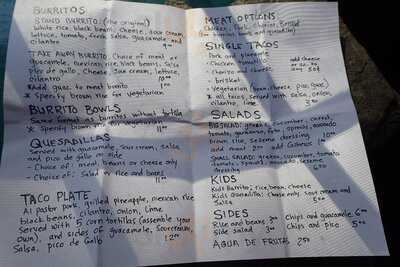 BURRITOS
BEAND BURRITO (the original)
White rice, black beans, cheese, sour cream
lettuce, tomato, fresh salsa, guacamole and
cilantro
TAKE AWAY BURRITO Choice of meat or
guacamole, mexican rice, black beans, salsa
pico de gallo, cheese, sour cream, lettuce,
cilantro 10.00
Add guac to meat burrito 1.00
* Specify brown rice or vegetarian
BURRITO BOWLS
Same format as burritos without tortilla
* Specify brown rice or vegetarian
QUESADILLAS
Served with guacamole, sour cream, salsa
and pico de gallo on side
- Choice of: meat, beans or cheese only
- Choice of: salad or rice and beans
11.00
TACO PLATE
Al pastor pork, grilled pineapple, mexican rice
black beans, cilantro, onion, lime
Served with 5 corn tortillas (assemble your
own), and sides of guacamole, sourcream,
Salsa, pico de gallo 12.00
MEAT OPTIONS
Chicken, Pork, Chorizo, Brisket
(for burritos, bowls and quesadillas)
SINGLE TACOS
- Pork and pineapple
- Chicken tomatillo add cheese
- Chorizo and cheese
- brisket
- Vegetarian (bean, cheese, pico, guac)
* all tacos served with salsa, onion,
cilantro, lime
SALADS
BIG SALAD: greens, cucumber, carrot,
tomato, guacamole, feta, sprouts, almonds,
brown rice, sesame dressing 10.00
add meat 3.00 add
SMALL SALAD: greens, cucumber, tomato
dressing
KIDS
Kids Burrito; rice, bean, cheese
Kids Quesadilla: cheese only, sour cream
and salsa 5.00
SIDES
Rice and beans 3.00 Chips and guacamole 6.00
side salad 3.00 Chips and pico 5.00
AGUA DE FRUTAS 2.50